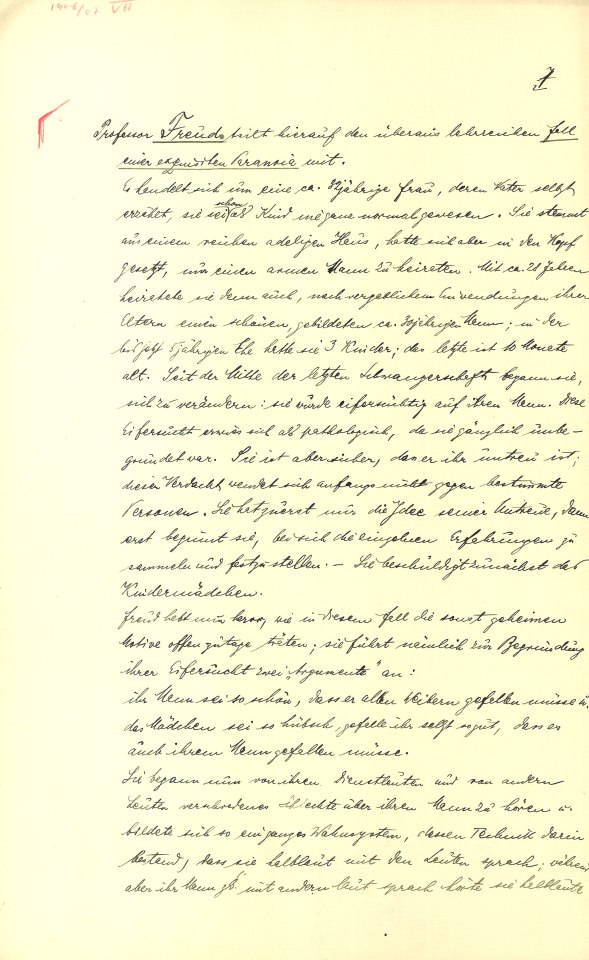 1906/07 VII
7
Professor Freud teilt hierauf den überaus lehrreichen Fall
einer exquisiten Paranoia mit.
Es handelt sich um eine ca. jährige Frau, deren Vater selbst
erzählt, sie sei schon als Kind nie ganz normal gewesen. Sie stammt
aus einem reichen adeligen Haus, hatte sich aber in den Kopf
gesetzt, nur einen armen Mann zu heiraten. Mit ca. 28 Jahren
heiratete sie denn auch, nach vergeblichen Einwendungen ihrer
Eltern einen schönen, gebildeten ca. 30jährigen Mann; in der
bis jetzt 5jährigen Ehe hatte sie 3 Kinder; das letzte ist 10 Monate
alt. Seit der Mitte der letzten Schwangerschaft begann sie,
sich zu verändern: sie wurde eifersüchtig auf ihren Mann. Diese
Eifersucht erwies sich als pathologisch, da sie gänzlich unbe-
gründet war. Sie ist aber sicher, dass er ihr untreu ist;
dieser Verdacht wendet sich anfangs nicht gegen bestimmte
Personen. Sie hat zuerst nur die Idee seiner Untreue, dann
erst beginnt sie, bei sich die einzelnen Erfahrungen zu
sammeln und festzustellen. – Sie beschuldigt zunächst das
Kindermädchen.
Freud hebt nun hervor, wie in diesem Fall die sonst geheimen
Motive offen zutage treten; sie führt nämlich zur Begründung
ihrer Eifersucht zwei „Argumente" an:
ihr Mann sei so schön, dass er allen Weibern gefallen müsse u.
das Mädchen sei so hübsch, gefalle ihr selbst so gut, dass es
auch ihrem Mann gefallen müsse.
Sie begann nun von ihren Dienstleuten und von andern
Leuten verschiedenes über ihren Mann zu hören u.
bildete sich so ein ganzes Wahnsystem, dessen Technik darin
bestand, dass sie halblaut mit den Leuten sprach; während
aber ihr Mann mit andern laut sprach hörte sie halblaute